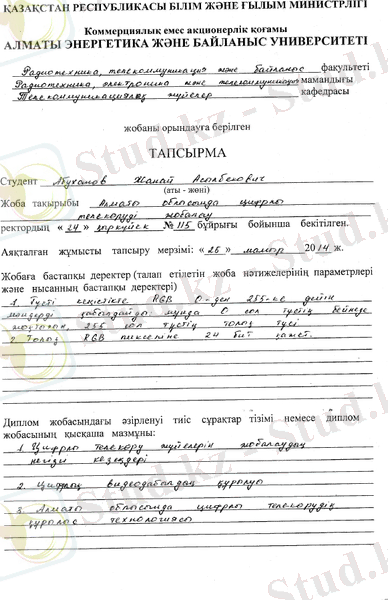 ҚАЗАҚСТАН РЕСПУБЛИКАСЫ БІЛІМ ЖӘНЕ ҒЫЛЫМ МИНИСТРЛІГІ
Коммерциялық емес акционерлік қоғамы
АЛМАТЫ ЭНЕРГЕТИКА ЖӘНЕ БАЙЛАНЫС УНИВЕРСИТЕТІ
Радиотехника, телекоммуникация және байланыс факультеті
Радиотехника, электроника және телекоммуникация мамандығы
Телекоммуникациялық жүйелер кафедрасы
жобаны орындауға берілген
ТАПСЫРМА
Студент Абуханов Жанат Асылбекович
(аты - жөні)
Жоба тақырыбы Алматы облысында цифрлы
телекөруді жобалау
ректордың «24» қыркүйек № 115 бұйрығы бойынша бекітілген.
Аяқталған жұмысты тапсыру мерзімі: «25» мамыр 2014 ж.
Жобаға бастапқы деректер (талап етілетін жоба нәтижелерінің параметрлері
және нысанның бастапқы деректері)
1. Түсті кеңселікте RGB 0-ден 255-ке дейін
мәндерді қабылдайды: мұнда 0 бұл түстің бейнеде
жоқтығын, 255 бұл түстің толық түсі
2. Толық RGB пикселіне 24 бит қажет.
Диплом жобасындағы әзірленуі тиіс сұрақтар тізімі немесе диплом
жобасының қысқаша мазмұны:
1. Цифрлы телекөру жүйелерін жобалаудың
негізгі кезеңдері
2. Цифрлық видеоқабылдау құрылуы
3. Алматы облысында цифрлы телекөрудің
құрылыс технологиясы
Stud.kz - Stud.kz